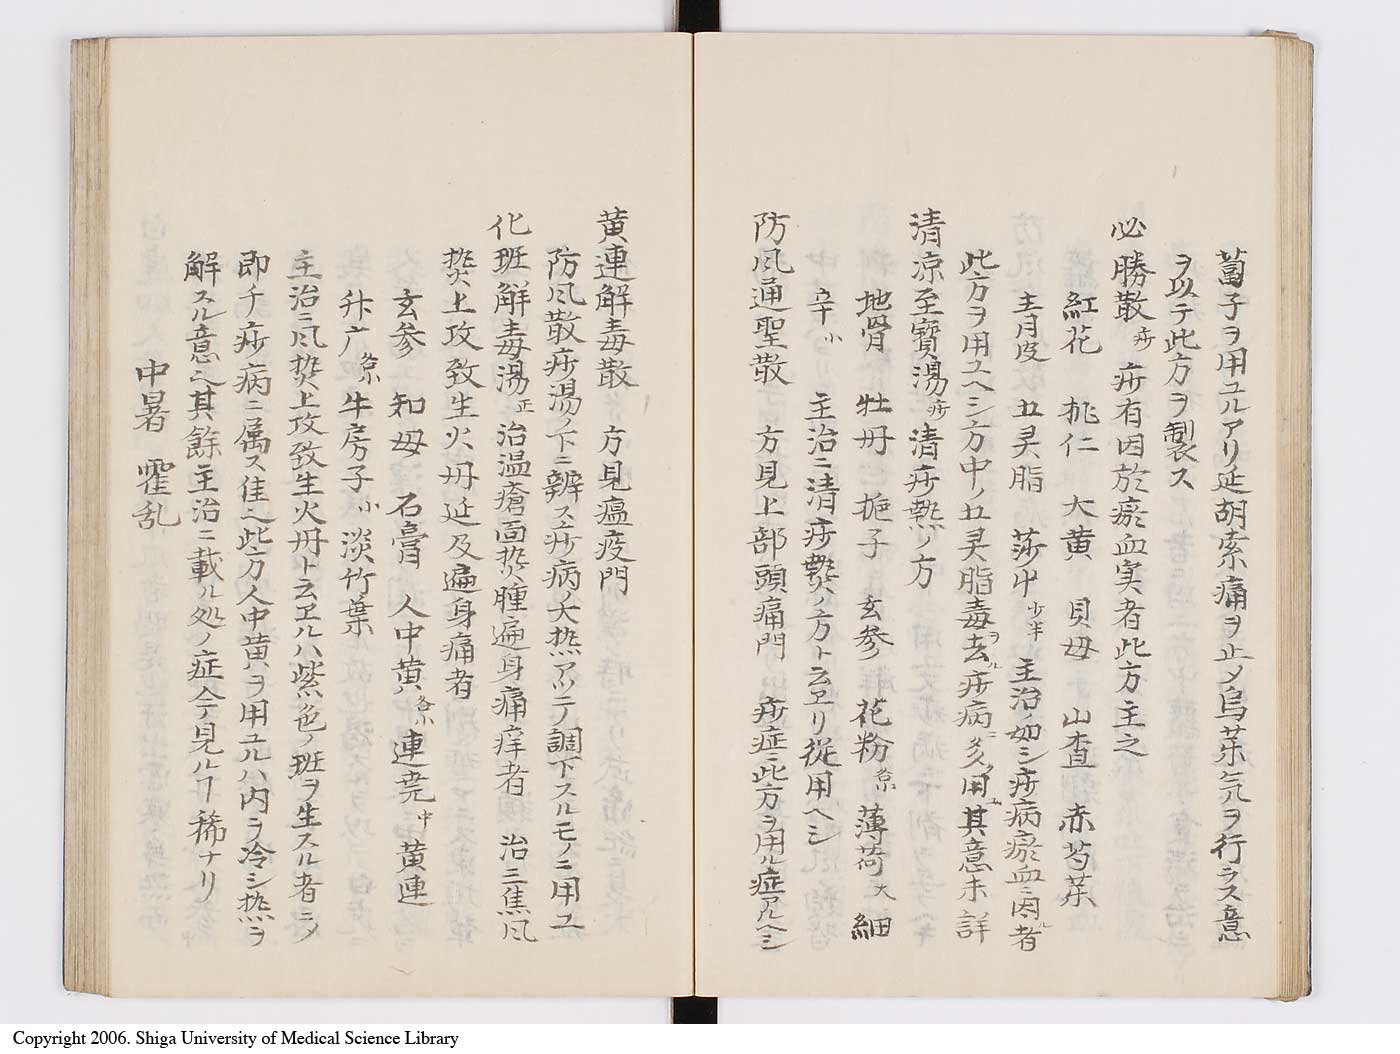 蔔子ヲ用ユルアリ延胡索痛ヲ止メ烏茱気ヲ行ラス意
ヲ以テ此方ヲ製ス
必勝散 痧 痧有因於瘀血実者此方主之
紅花 桃仁 大黄 貝母 山査 赤芍薬
青皮 五灵脂 莎中 少半 主治ノ如シ痧病瘀血ニ因ル者
此方ヲ用ユヘシ方中ノ五灵脂毒ヲ去ル痧病ニ多ク用ユ其意未詳
清凉至寶湯 痧 清痧熱ノ方
地骨 牡丹 梔子 玄参 花粉 各京 薄荷 大 細
辛 小 主治ニ清痧熱ノ方ト云ヱリ從用ヘシ
防风通聖散 方見上部頭痛門 痧症ニ此方ヲ用ル症アルヘシ
黄連解毒散 方見瘟疫門
防风散痧湯ノ下ニ辨ス痧病ノ大热アツテ調下スルモノニ用ユ
化班解毒湯 正 治温瘡面㷊腫遍身痛痒者 治三焦风
㷊上攻致生火丹延及遍身痛者
玄参 知母 石膏 人中黄 各京 連壳 中 黄連
升广 各京 牛房子 小 淡竹葉
主治ニ风㷊上攻致生火丹ト云ヱルハ紫色ノ班ヲ生スル者ニメ
即チ痧病ニ属ス佳之此方人中黄ヲ用ユルハ内ヲ冷シ热ヲ
解スル意之其餘主治ニ載ル処ノ症今テ見ルヿ稀ナリ
中暑 霍乱
Copyright 2006. Shiga University of Medical Science Library